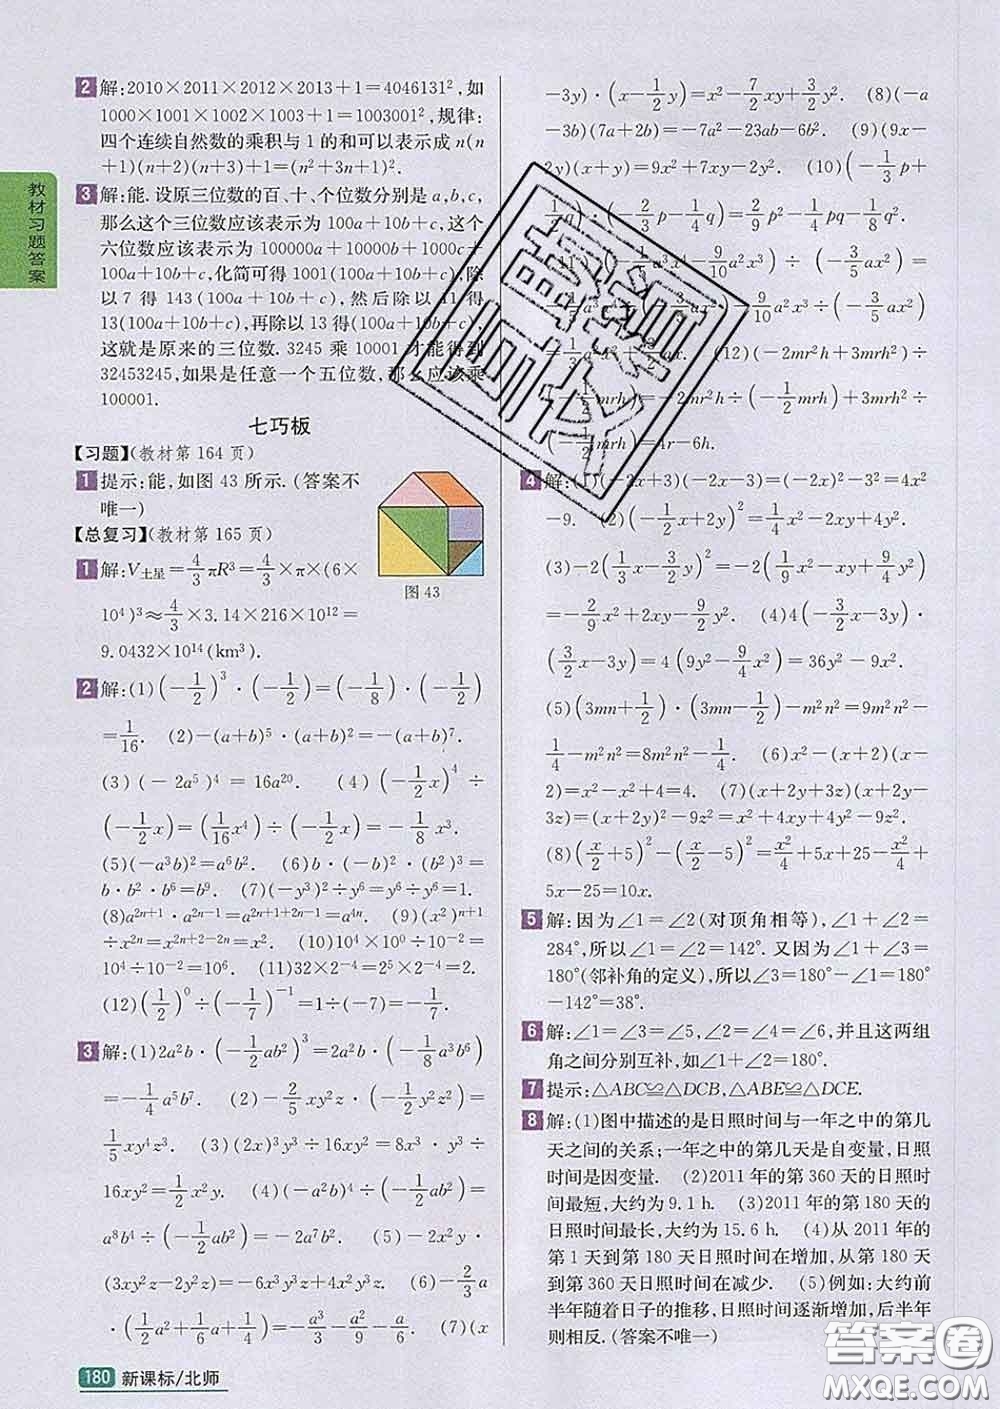 教材习题答案
2 解:2010×2011×2012×2013+1=4046131²,如
1000×1001×1002×1003+1=1003001²,规律:
四个连续自然数的乘积与1的和可以表示成n(n
+1)(n+2)(n+3)+1=(n²+3n+1)².
3 解:能.设原三位数的百、十、个位数分别是a,b,c,
那么这个三位数应该表示为100a+10b+c,这个
六位数应该表示为100000a+10000b+1000c+
100a+10b+c,化简可得1001(100a+10b+c),除
以7得143(100a+10b+c),然后除以11得
13(100a+10b+c),再除以13得(100a+10b+c),
这就是原来的三位数.3245乘10001才能得到
32453245,如果是任意一个五位数,那么应该乘
100001.
七巧板
【习题】(教材第164页)
1 提示:能,如图43所示.(答案不
唯一)
图43
【总复习】(教材第165页)
1 解:V土星=4/3πR³=4/3×π×(6×
10⁴)³≈4/3×3.14×216×10¹²=
9.0432×10¹⁴(km³).
2 解:(1)(-1/2)³·(-1/2)=(-1/8)·(-1/2)
=1/16. (2)-(a+b)⁵·(a+b)²=-(a+b)⁷.
(3)(-2a⁵)⁴=16a²⁰. (4)(-1/2x)⁴÷
(-1/2x)=(1/16x⁴)÷(-1/2x)=-1/8x³.
(5)(-a³b)²=a⁶b². (6)b·(-b)²·(b²)³=
b·b²·b⁶=b⁹. (7)(-y³)²÷y⁶=y⁶÷y⁶=1.
(8)a²ⁿ⁺¹·a²ⁿ⁻¹=a²ⁿ⁺¹⁺²ⁿ⁻¹=a⁴ⁿ. (9)(x²)ⁿ⁺¹
÷x²ⁿ=x²ⁿ⁺²⁻²ⁿ=x². (10)10⁴×10⁰÷10⁻²=
10⁴÷10⁻²=10⁶. (11)32×2⁻⁴=2⁵×2⁻⁴=2.
(12)(1/2)⁰÷(-1/7)⁻¹=1÷(-7)=-1/7.
3 解:(1)2a²b·(-1/2ab²)³=2a²b·(-1/8a³b⁶)
=-1/4a⁵b⁷. (2)-2/5xy²z·(-1/2xy²z²)=
1/5xy⁴z³. (3)(2x)³y³÷16xy²=8x³·y³÷
16xy²=1/2x²y. (4)(-a²b)⁴÷(-1/2ab²)=
a⁸b⁴÷(-1/2ab²)=-2a⁷b². (5)-2x²y·
(3xy²z-2y²z)=-6x³y³z+4x²y³z. (6)-2/3a
·(1/2a²+1/6a+1/4)=-a³/3-a²/9-a/6. (7)(x
-3y)·(x-1/2y)=x²-7/2xy+3/2y². (8)(-a
-3b)(7a+2b)=-7a²-23ab-6b². (9)(9x-
2y)(x+y)=9x²+7xy-2y². (10)(-1/3p+
1/2q)÷(-2/3p-1/4q)=2/9p²-1/4pq-1/8q².
a²x³)÷(-3/5ax²)=
-9/10a²x³÷(-3/5ax²)=
(12)(-2mr²h+3mrh²)÷
(-1/2mrh)=-2mr²h÷(-1/2mrh)+3mrh²÷
(-1/2mrh)=4r-6h.
4 解:(1)(-2x+3)(-2x-3)=(-2x)²-3²=4x²
-9. (2)(-1/2x+2y)²=1/4x²-2xy+4y².
(3)-2(1/3x-3/2y)²=-2(1/9x²-xy+9/4y²)
=-2/9x²+2xy-9/2y². (4)4(-3/2x-3y)·
(3/2x-3y)=4(9y²-9/4x²)=36y²-9x².
(5)(3mn+1/2)·(3mn-1/2)-m²n²=9m²n²
-1/4-m²n²=8m²n²-1/4. (6)x²-(x+2)(x-
2)=x²-x²+4=4. (7)(x+2y+3z)(x+2y-
3z)=(x+2y)²-9z²=x²+4xy+4y²-9z².
(8)(x/2+5)²-(x/2-5)²=x²/4+5x+25-x²/4+
5x-25=10x.
5 解:因为∠1=∠2(对顶角相等),∠1+∠2=
284°,所以∠1=∠2=142°.又因为∠1+∠3=
180°(邻补角的定义),所以∠3=180°-∠1=180°
-142°=38°.
6 解:∠1=∠3=∠5,∠2=∠4=∠6,并且这两组
角之间分别互补,如∠1+∠2=180°.
7 提示:△ABC≌△DCB,△ABE≌△DCE.
8 解:(1)图中描述的是日照时间与一年之中的第几
天之间的关系;一年之中的第几天是自变量,日照
时间是因变量. (2)2011年的第360天的日照时
间最短,大约为9.1h. (3)2011年的第180天的
日照时间最长,大约为15.6h. (4)从2011年的
第1天到第180天日照时间在增加,从第180天
到第360天日照时间在减少. (5)例如:大约前
半年随着日子的推移,日照时间逐渐增加,后半年
则相反.(答案不唯一)
180 新课标/北师
答案圈
MXQE.COM